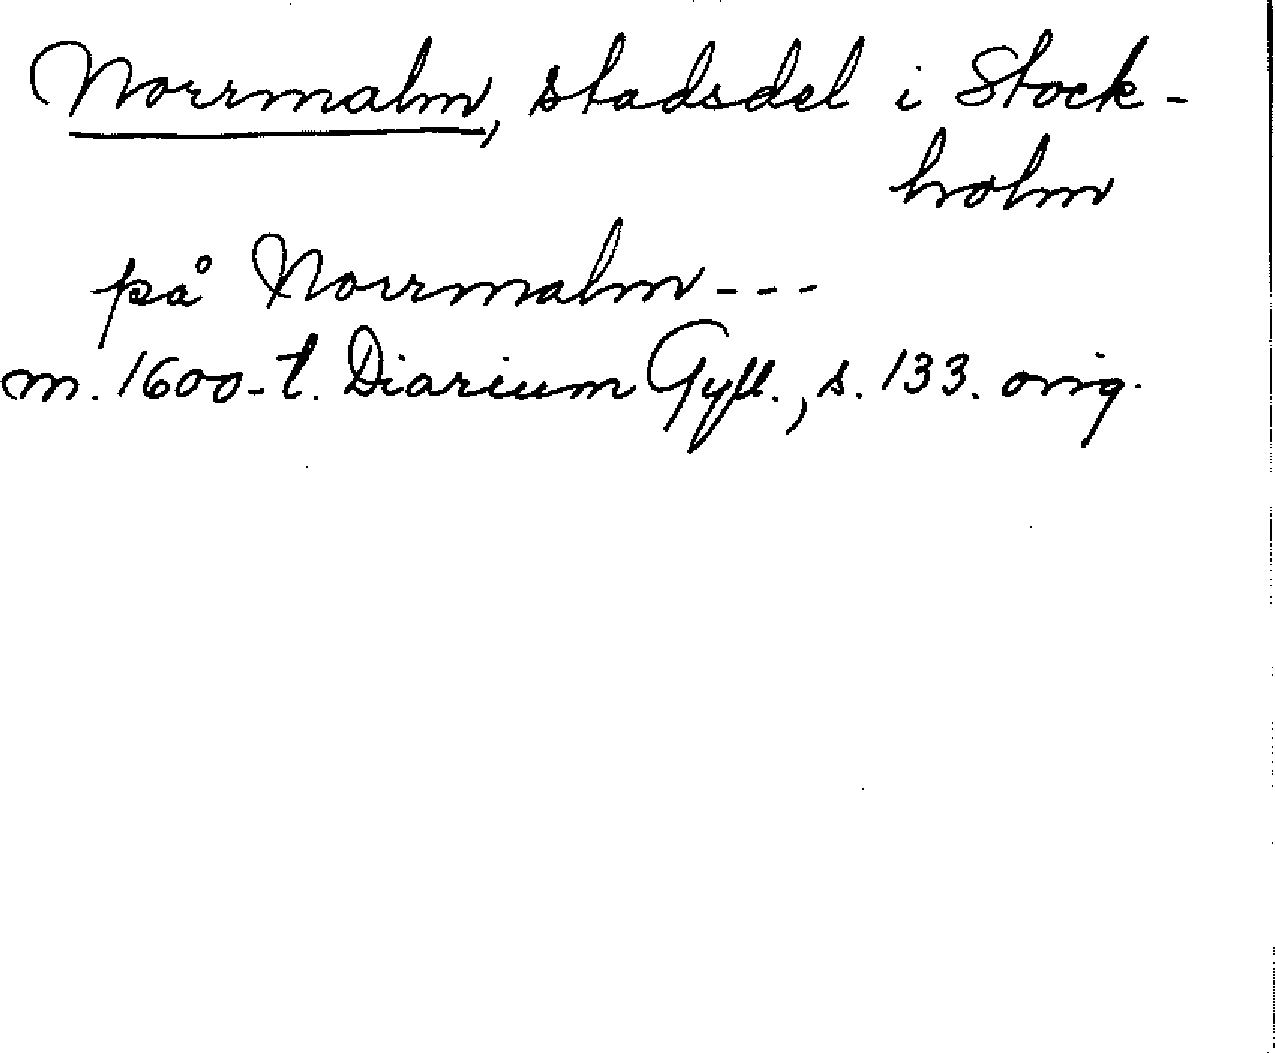 Norrmalm, stadsdel i Stock-
holm
på Norrmalm---
m. 1600-t. Diarium Gyll., s. 133. orig.